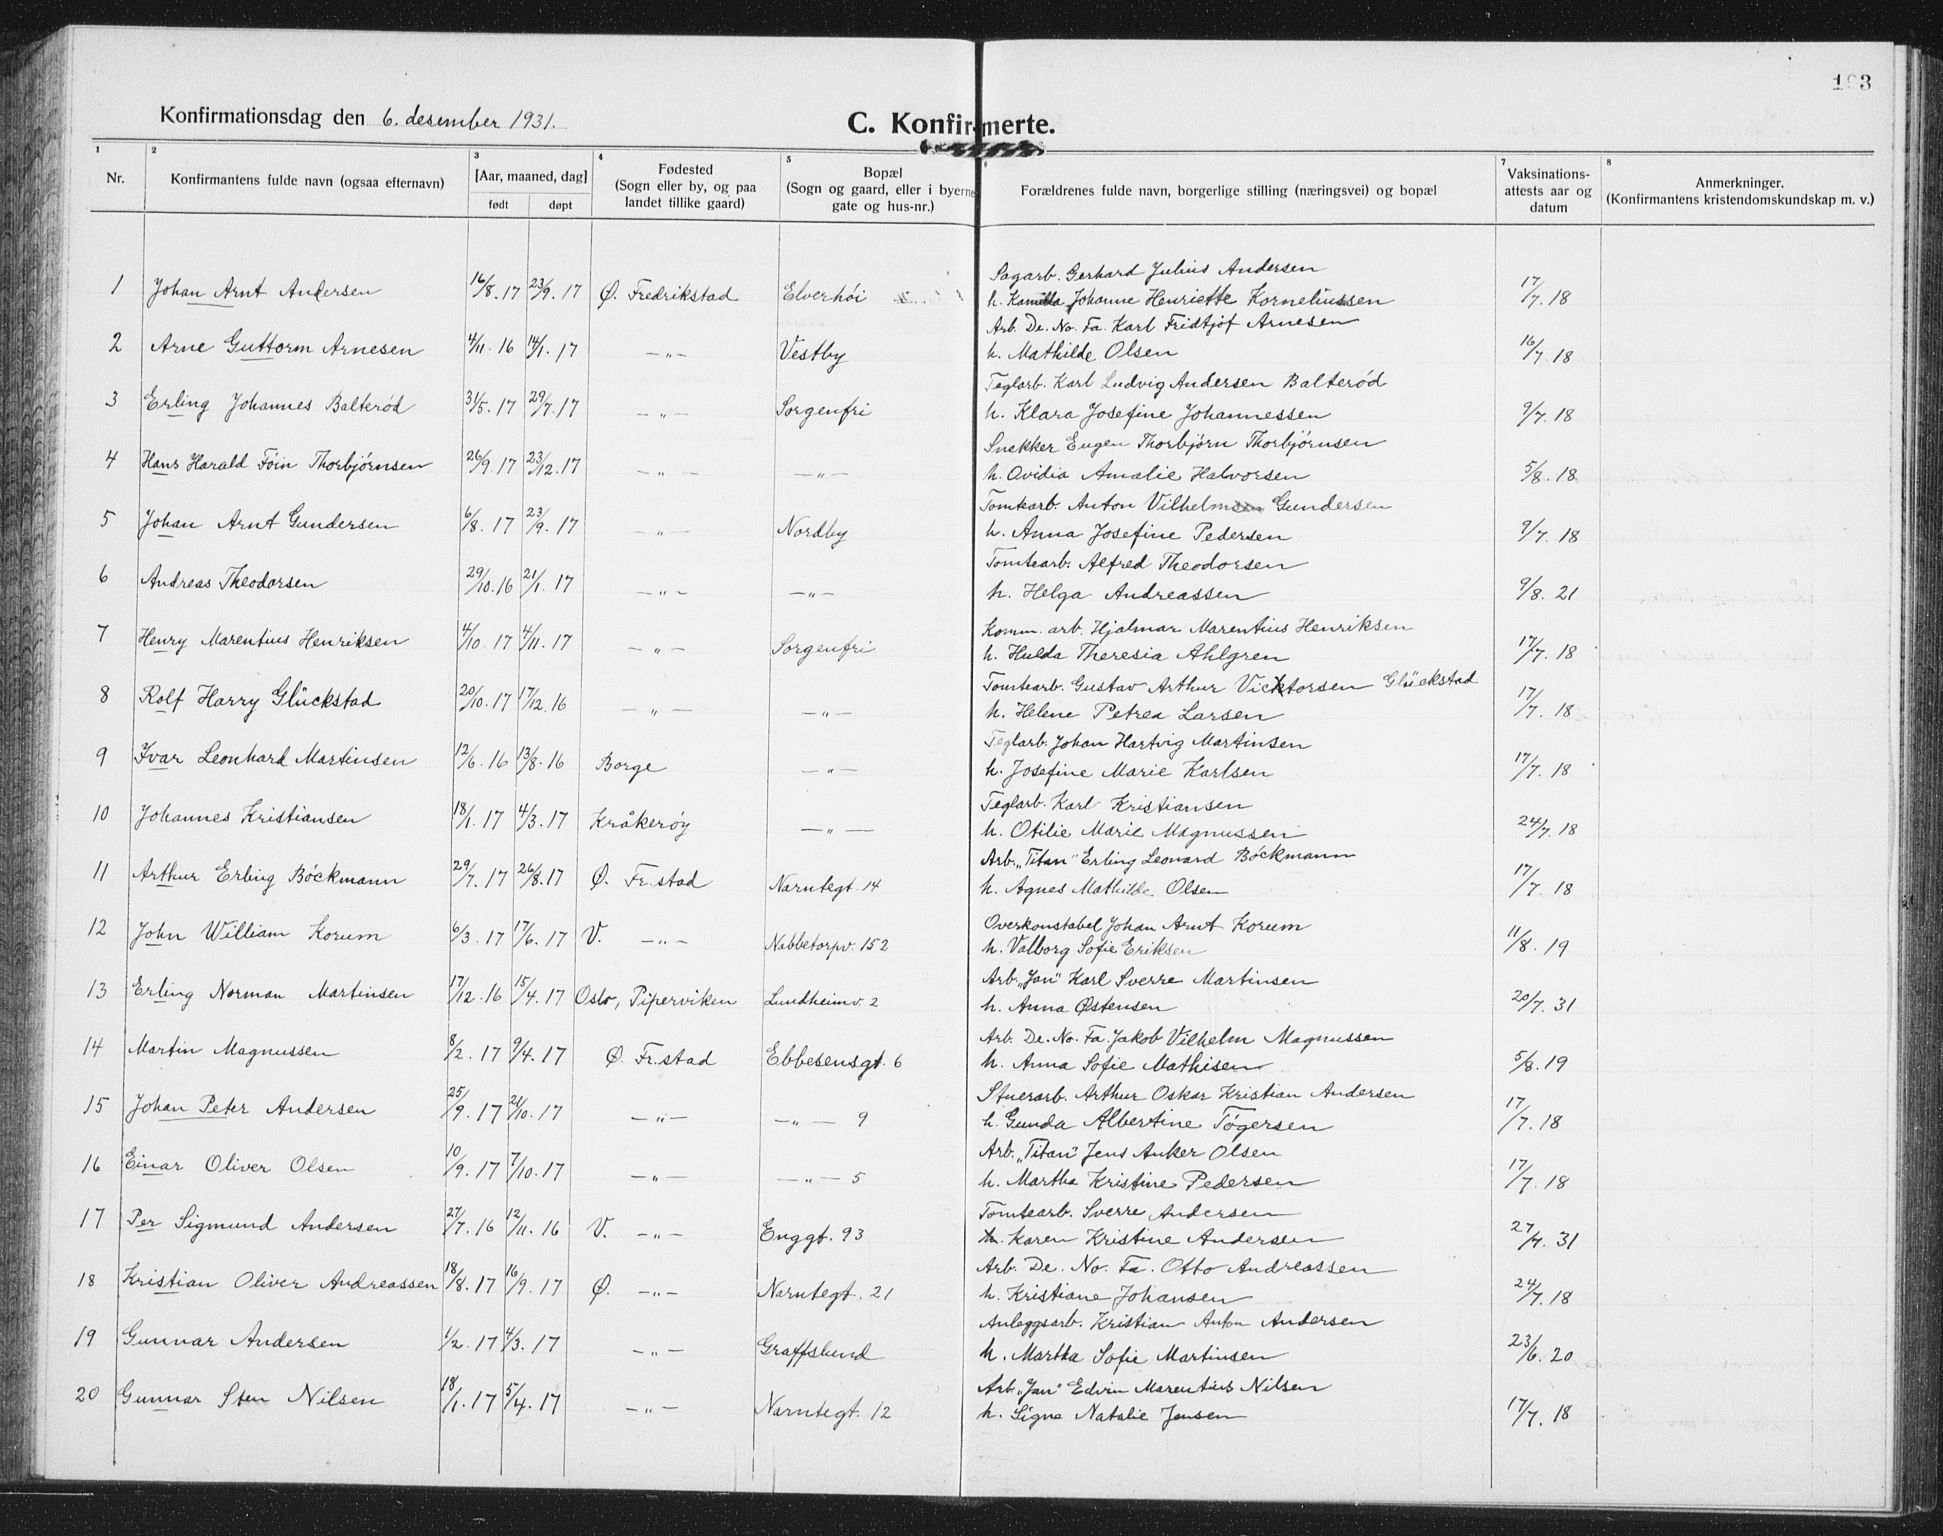 193
Konfirmationsdag den 6. desember 1931.
C. Konfirmerte.
1 2 3 4 5 6 7 8
Nr. Konfirmantens fulde navn (ogsaa efternavn) [Aar, maaned, dag] født døpt Fødested (Sogn eller by, og paa landet tillike gaard) Bopæl (Sogn og gaard, eller i byerne gate og hus-nr.) Forældrenes fulde navn, borgerlige stilling (næringsvei) og bopæl Vaksinations-attests aar og datum Anmerkninger. (Konfirmantens kristendomskundskap m. v.)
1 Johan Arnt Andersen 16/8.17 23/9.17 Ø. Fredrikstad Elverhöi Sagarb. Gerhard Julius Andersen 17/7.18
h. Kamilla Johanne Henriette Korneliussen
2 Arne Guttorm Arnesen 4/11.16 14/1.17 —"— Vestby Arb. De. No. Fa. Karl Fridtjof Arnesen 16/7.18
h. Mathilde Olsen
3 Erling Johannes Balteröd 31/5.17 29/7.17 —"— Sorgenfri Teglarb. Karl Ludvig Andersen Balteröd 9/7.18
h. Klara Josefine Johannessen
4 Hans Harald Föin Thorbjörnsen 26/9.17 23/12.17 —"— —"— Snekker Eugen Thorbjörn Thorbjörnsen 5/8.18
h. Ovidia Amalie Halvorsen
5 Johan Arnt Gundersen 6/8.17 23/9.17 —"— Nordby Tomtearb. Anton Vilhelm Gundersen 9/7.18
h. Anna Josefine Pedersen
6 Andreas Theodorsen 29/10.16 21/1.17 —"— —"— Tomtearb. Alfred Theodorsen 9/8.21
h. Helga Andreassen
7 Henry Marentius Henriksen 4/10.17 4/11.17 —"— Sorgenfri Komm. arb. Hjalmar Marentius Henriksen 17/7.18
h. Hulda Theresia Ahlgren
8 Rolf Harry Glückstad 20/10.17 17/12.16 —"— —"— Tomtearb. Gustav Arthur Vicktorsen Glückstad 17/7.18
h. Helene Petrea Larsen
9 Ivar Leonhard Martinsen 12/6.16 13/8.16 Borge —"— Teglarb. Johan Hartvig Martinsen 17/7.18
h. Josefine Marie Karlsen
10 Johannes Kristiansen 18/1.17 4/3.17 Kråkeröy —"— Teglarb. Karl Kristiansen 24/7.18
h. Otilie Marie Magnussen
11 Arthur Erling Böckmann 29/7.17 26/8.17 Ø. Fr.stad Narntegt. 14 Arb. „Titan" Erling Leonard Böckmann 17/7.18
h. Agnes Mathilde Olsen
12 John William Korum 6/3.17 17/6.17 V. —"— Nabbetorpv. 152 Overkonstabel Johan Arnt Korum 11/8.19
h. Valborg Sofie Eriksen
13 Erling Norman Martinsen 17/12.16 15/4.17 Oslo, Piperviken Lundheimv. 2 Arb. „Jan" Karl Sverre Martinsen 20/7.31
h. Anna Østensen
14 Martin Magnussen 8/2.17 9/4.17 Ø. Fr.stad Ebbesensgt. 6 Arb. De. No. Fa. Jakob Vilhelm Magnussen 5/8.19
h. Anna Sofie Mathisen
15 Johan Peter Andersen 25/9.17 21/10.17 —"— —"— 9 Stuerarb. Arthur Oskar Kristian Andersen 17/7.18
h. Gunda Albertine Tögersen
16 Einar Oliver Olsen 10/9.17 7/10.17 —"— —"— 5 Arb. „Titan" Jens Anker Olsen 17/7.18
h. Martha Kristine Pedersen
17 Per Sigmund Andersen 27/7.16 12/11.16 V. —"— Enggt. 93 Tomtearb. Sverre Andersen 27/7.31
h. Karen Kristine Andersen
18 Kristian Oliver Andreassen 18/8.17 16/9.17 Ø. —"— Narntegt. 21 Arb. De. No. Fa. Otto Andreassen 24/7.18
h. Kristiane Johansen
19 Gunnar Andersen 1/2.17 4/3.17 —"— Graffslund Anleggsarb. Kristian Anton Andersen 23/6.20
h. Martha Sofie Martinsen
20 Gunnar Sten Nilsen 18/1.17 5/4.17 —"— Narntegt. 12 Arb. „Jan" Edvin Marentius Nilsen 17/7.18
h. Signe Natalie Jensen